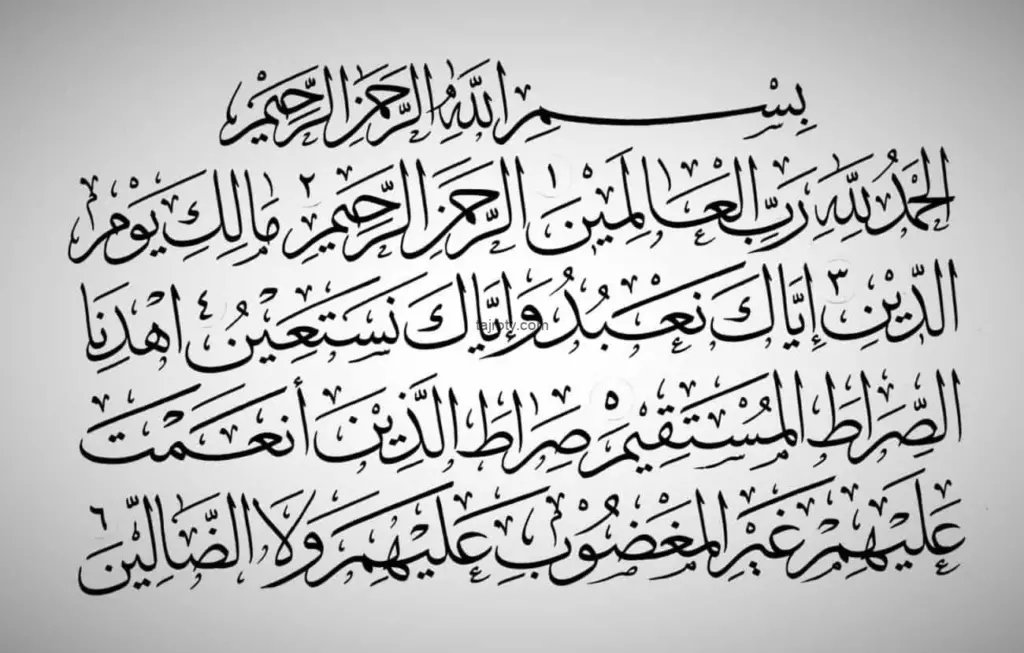 بِسْمِ اللَّهِ الرَّحْمَنِ الرَّحِيْمِ
الْحَمْدُ لِلَّهِ رَبِّ الْعَالَمِيْنَ ١ الرَّحْمَنِ الرَّحِيْمِ ٢ مَالِكِ يَوْمِ
الدِّيْنِ ٣ إِيَّاكَ نَعْبُدُ وَإِيَّاكَ نَسْتَعِيْنُ ٤ اهْدِنَا
tajroty.com
الصِّرَاطَ الْمُسْتَقِيْمَ ٥ صِرَاطَ الَّذِيْنَ أَنْعَمْتَ
عَلَيْهِمْ غَيْرِ الْمَغْضُوْبِ عَلَيْهِمْ وَلَا الضَّالِّيْنَ ٦